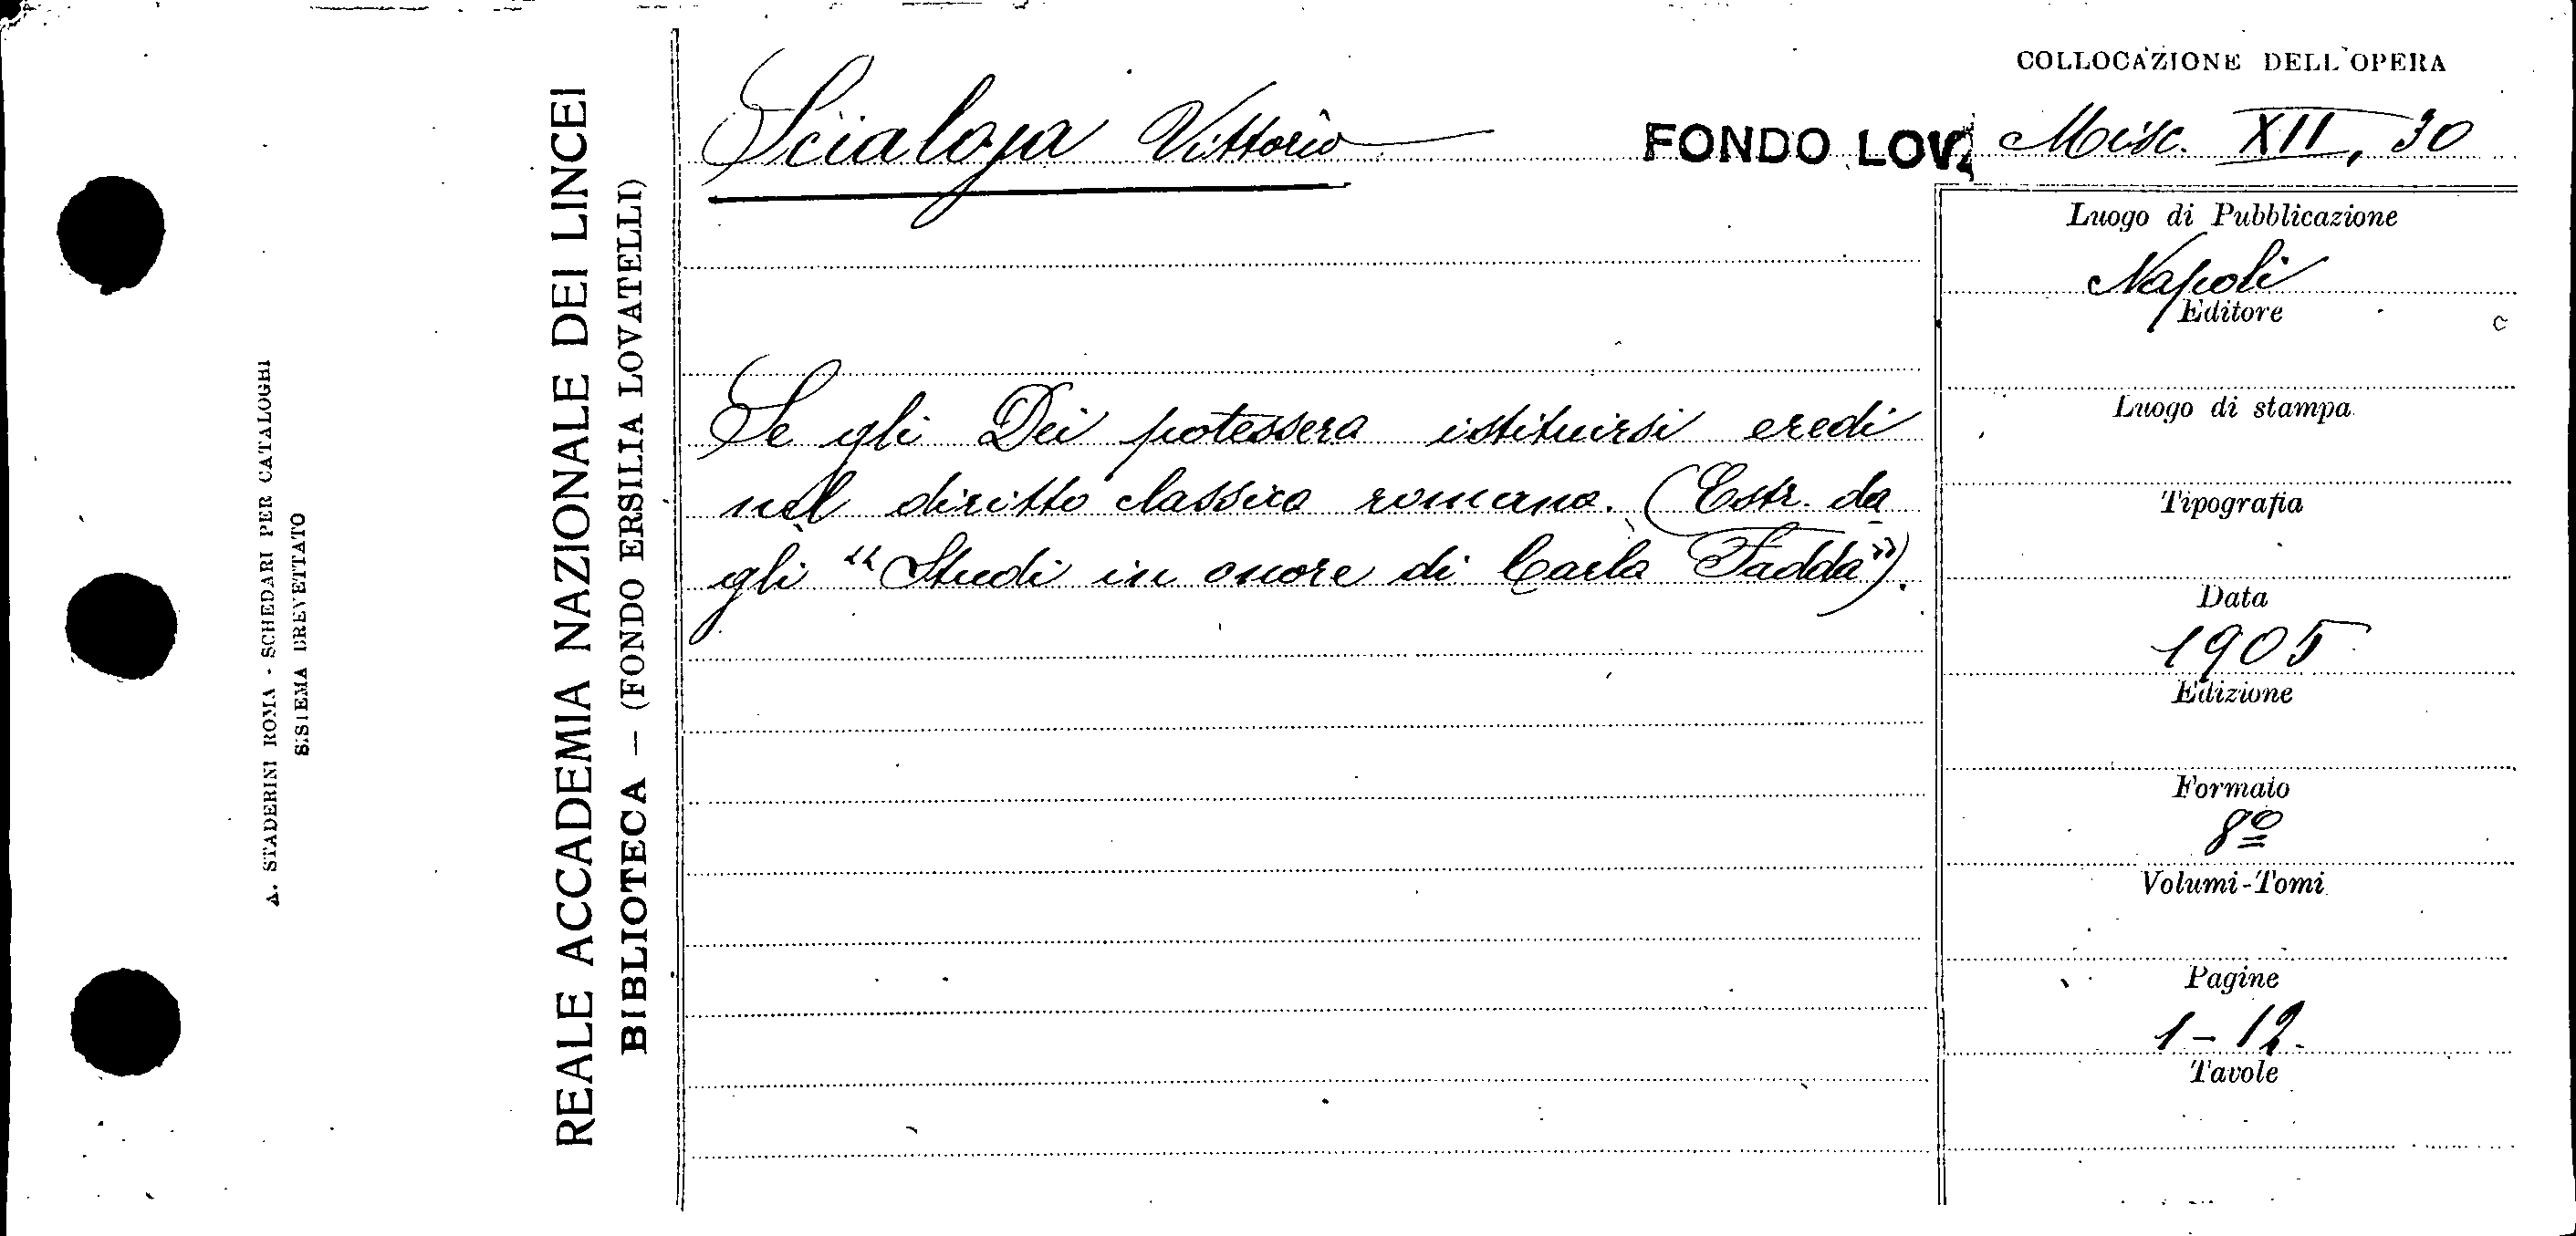 A. STADERINI ROMA - SCHEDARI PER CATALOGHI
SISTEMA BREVETTATO
REALE ACCADEMIA NAZIONALE DEI LINCEI
BIBLIOTECA — (FONDO ERSILIA LOVATELLI)
COLLOCAZIONE DELL'OPERA
Scialoja Vittorio
FONDO LOV. Misc. XII, 30
Se gli Dei potessero istituirsi eredi
nel diritto classico romano. (Estr. da
gli "Studi in onore di Carlo Fadda").
Luogo di Pubblicazione
Napoli
Editore
Luogo di stampa
Tipografia
Data
1905
Edizione
Formato
8º
Volumi-Tomi
Pagine
1-12.
Tavole